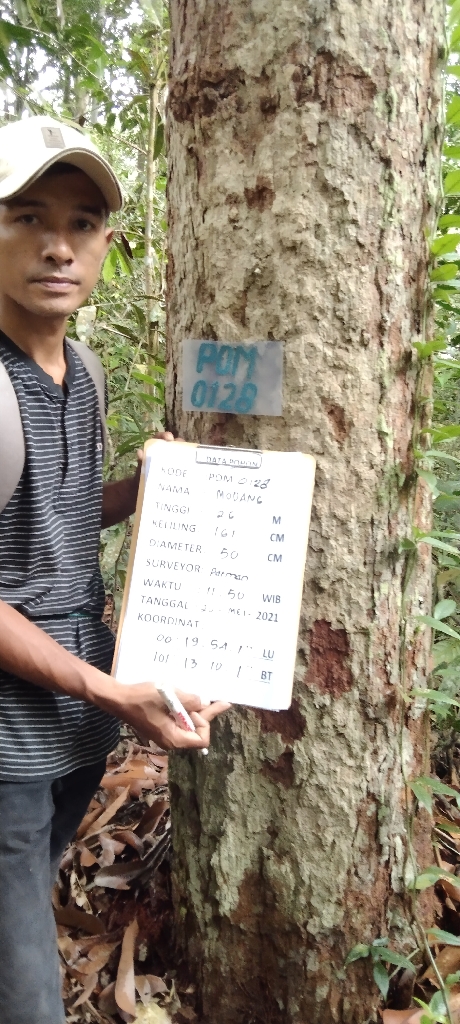 PDM
0128
DATA POHON
KODE PDM 0128
NAMA MODANG
TINGGI 26 M
KELILING 161 CM
DIAMETER 50 CM
SURVEYOR Parman
WAKTU 11.50 WIB
TANGGAL MEI- 2021
KOORDINAT
00 19 54 1" LU
101 13 10 1" BT